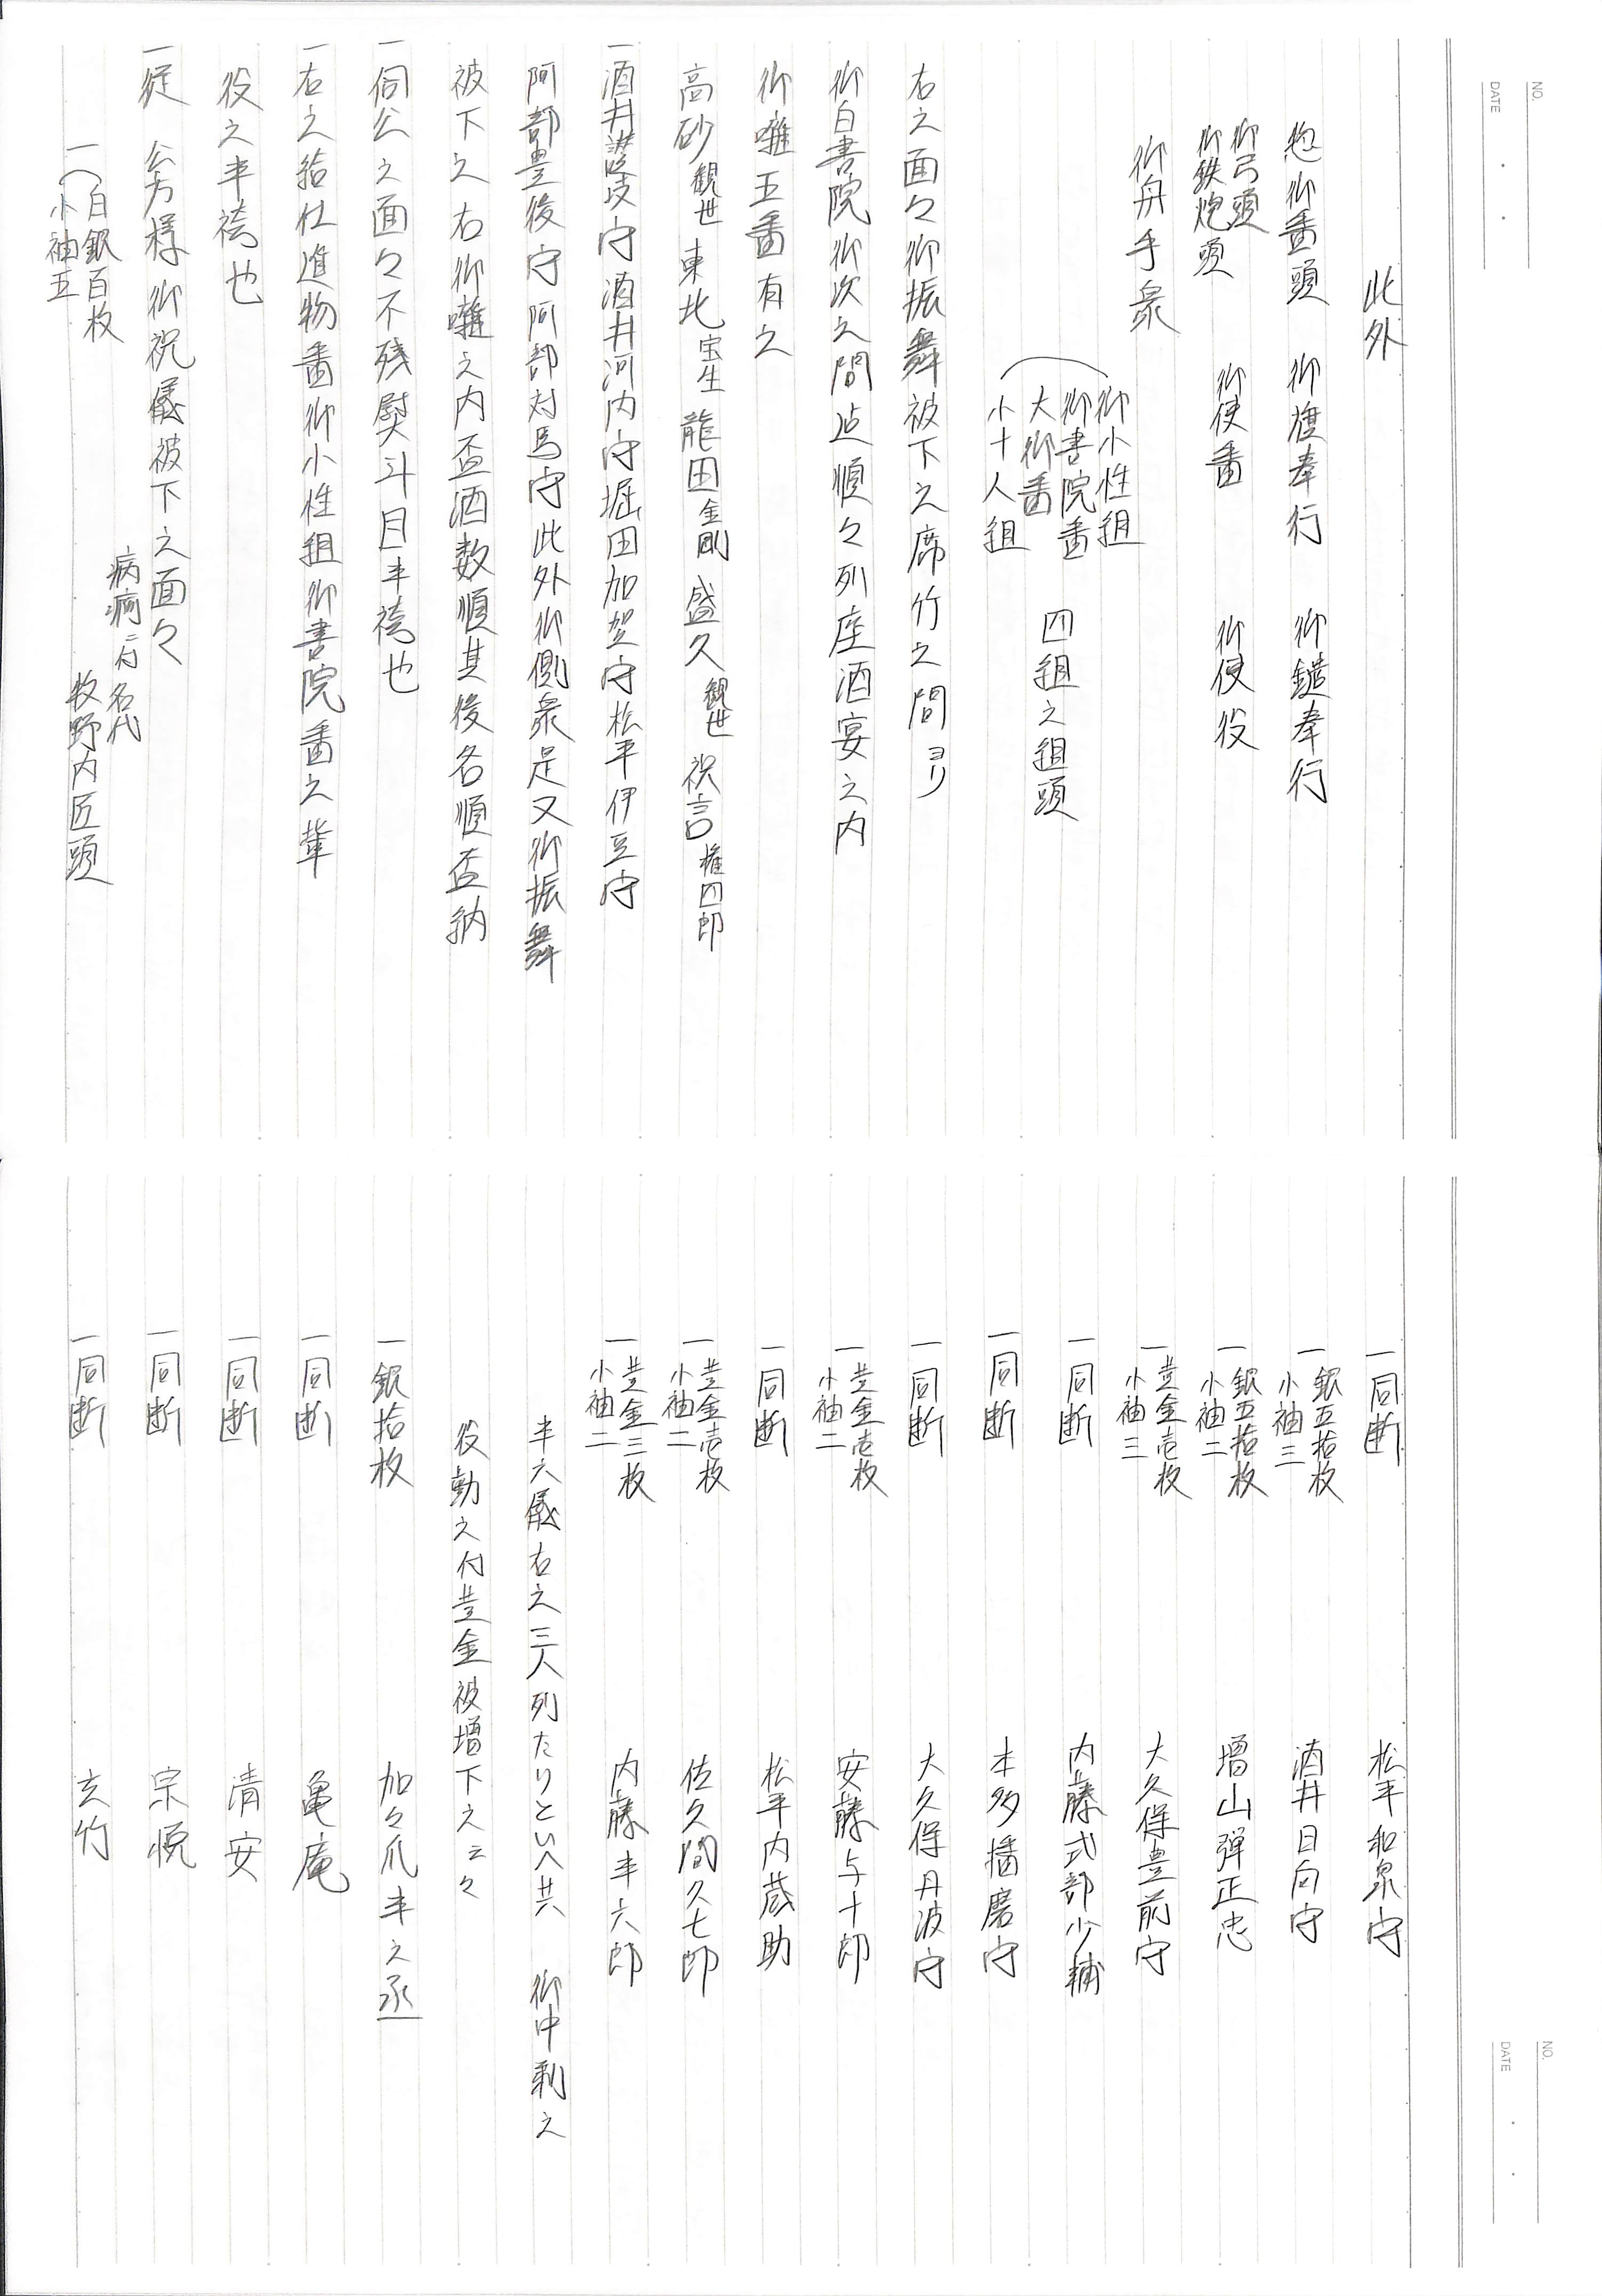 NO.
DATE
此外
惣御番頭 御旗奉行 御鑓奉行
御弓頭
御鉄炮頭 御使番 御使役
御舟手衆
御小性組
御書院番
大御番
小十人組
四組之組頭
右之面々御振舞被下之席竹之間ヨリ
御白書院御次之間迄順々列座酒宴之内
御囃五番有之
高砂 観世 東北 宝生 龍田 金剛 盛久 観世 祝言 権四郎
一酒井讃岐守酒井河内守堀田加賀守松平伊豆守
阿部豊後守阿部対馬守此外御側衆是又御振舞
被下之右御囃之内盃酒数順其後各順盃納
一伺公之面々不残熨斗目半袴也
一右之給仕進物番御小性組御書院番之輩
役之半袴也
一従 公方様御祝儀被下之面々
一白銀百枚
小袖五
病痾ニ付名代
牧野内匠頭
NO.
DATE
一同断 松平和泉守
一銀五拾枚
小袖三 酒井日向守
一銀五拾枚
小袖二 増山弾正忠
一黄金壱枚
小袖三 大久保豊前守
一同断 内藤式部少輔
一同断 本多播磨守
一同断 大久保丹波守
一黄金壱枚
小袖二 安藤与十郎
一同断 松平内蔵助
一黄金壱枚
小袖二 佐久間久七郎
一黄金三枚
小袖二 内藤半六郎
半六儀右之三人列たりといへ共 御中剃之
役勤之付黄金被増下之云々
一銀拾枚 加々爪半之丞
一同断 亀庵
一同断 清安
一同断 宗悦
一同断 玄竹